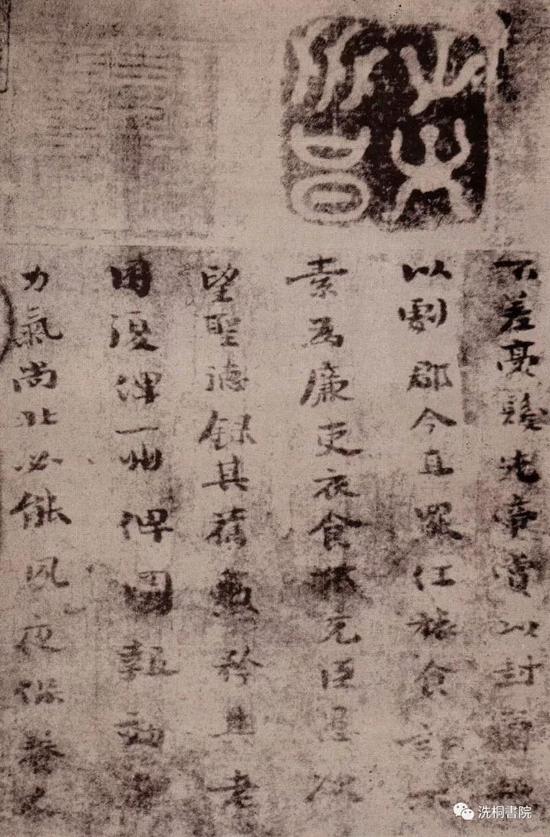 不差毫髮先帝賞以封爵授
以劇郡今直罷任旅食許下
素為廉吏衣食不充臣愚欲
望聖德錄其舊勳矜其老
困復俾一州俾圖報効直
力氣尚壯必能夙夜保養人
洗桐書院